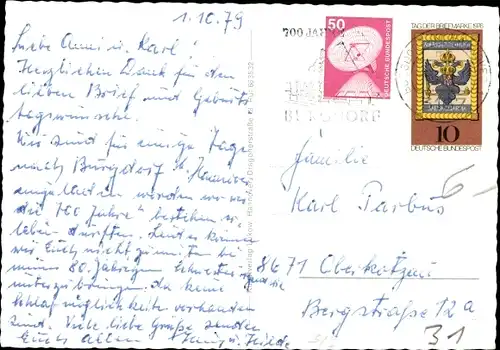 1.10.79
Liebe Anni u. Karl
Herzlichen Dank für den
lieben Brief und Geburts
tagswünsche.
Wir sind für einige Tage
nach Burgdorf b. Hannover
eingeladen worden wo wir
die "700 Jahre" bestehen er-
leben durften. Leider können
wir Euch nicht zumuten bei
meiner 80 Jährigen Schwester
unterzubringen, da keine
Schlafmöglichkeit vorhanden
sind. Viele liebe Grüße senden
Euch allen Hilde
700 JAHRE
BURGDORF
50
DEUTSCHE BUNDESPOST
TAG DER BRIEFMARKE 1976
10
DEUTSCHE BUNDESPOST
Familie
Karl Tarbus
8671 Oberkotzau
Bergstraße 12a
31